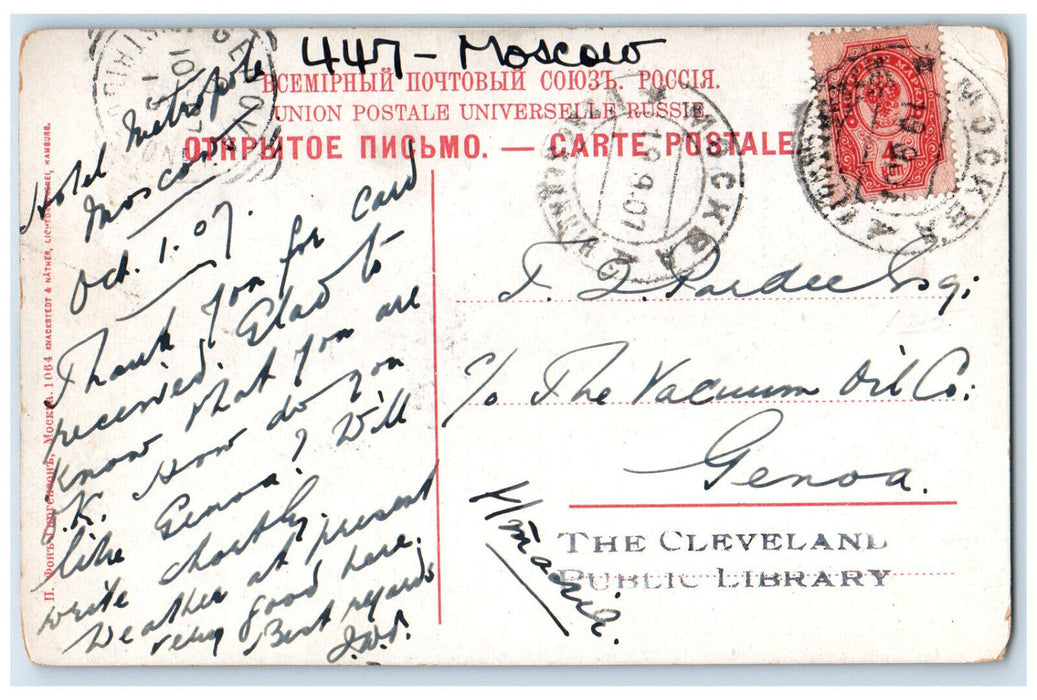 447 - Moscow
ВСЕМІРНЫЙ ПОЧТОВЫЙ СОЮЗЪ. РОССІЯ.
UNION POSTALE UNIVERSELLE RUSSIE.
ОТКРЫТОЕ ПИСЬМО. — CARTE POSTALE
Hotel Metropole
Moscow
Oct. 1. 07.
Thank you for card
received. Glad to
know that you are
O.K. How do you
like Genoa? Will
write shortly.
Weather at present
very good here.
Best regards
J.W.P.
Pardee Esq;
c/o The Vacuum Oil Co:
Genoa.
THE CLEVELAND
PUBLIC LIBRARY
МОСКВА
19.9.07
МОСКВА
GENOVA
П. Фонъ-Гиргенсонъ, Москва. 1064 KNACKSTEDT & NÄTHER, LICHTDRUCKEREI, HAMBURG.